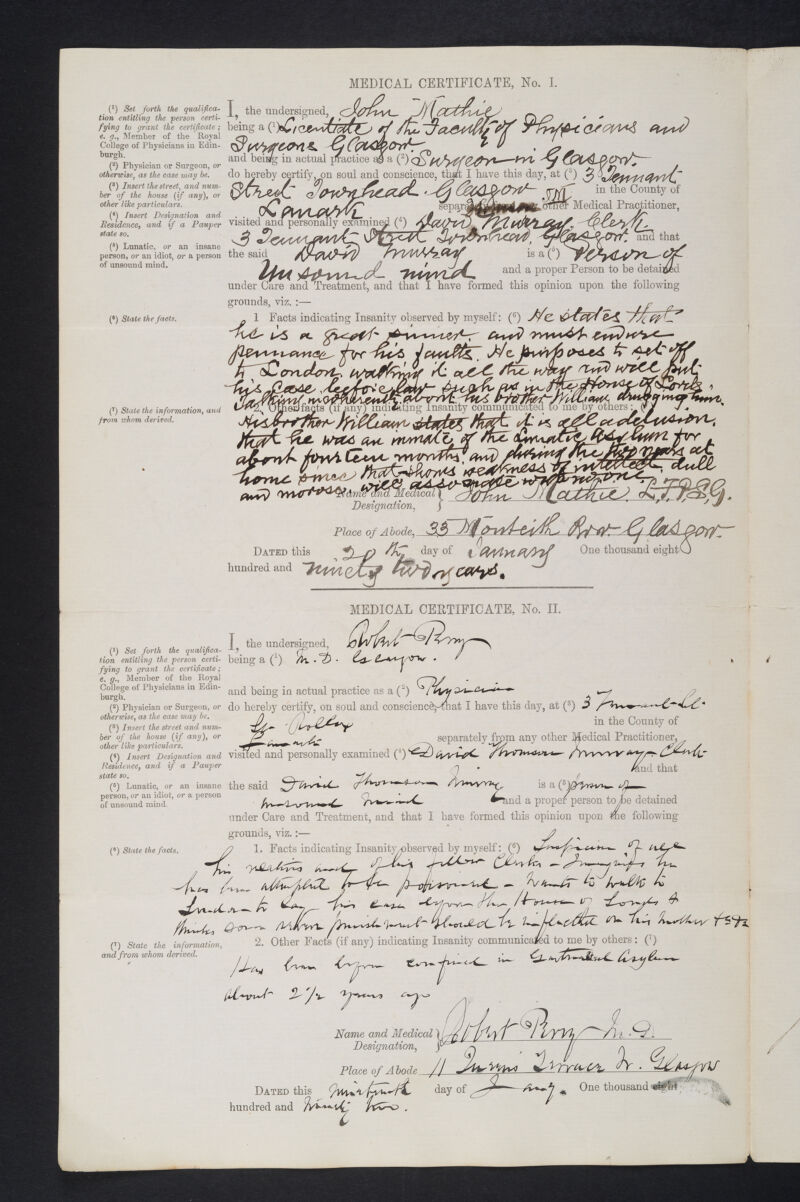 MEDICAL CERTIFICATE, No. I.
(¹) Set forth the qualifica-
tion entitling the person certi-
fying to grant the certificate;
e. g., Member of the Royal
College of Physicians in Edin-
burgh.
(²) Physician or Surgeon, or
otherwise, as the case may be.
(³) Insert the street, and num-
ber of the house (if any), or
other like particulars.
(⁴) Insert Designation and
Residence, and if a Pauper
state so.
(⁵) Lunatic, or an insane
person, or an idiot, or a person
of unsound mind.
I, the undersigned, John Mathie
being a (¹) Licentiate of the Faculty of Physicians and
Surgeons Glasgow.
and being in actual practice as a (²) Surgeon in Glasgow.
do hereby certify, on soul and conscience, that I have this day, at (³) 3 Tennant
Street Townhead Glasgow J.M in the County of
Lanark separately from any other Medical Practitioner,
visited and personally examined (⁴) David Murray Clerk
3 Tennant Street Townhead, Glasgow. and that
the said David Murray is a (⁵) Person of
Unsound mind and a proper Person to be detained
under Care and Treatment, and that I have formed this opinion upon the following
grounds, viz. :—
(⁶) State the facts.
1 Facts indicating Insanity observed by myself: (⁶) He states that
he is a great sinner and must endure
pennance for his faults. He purposes to set off
to London, walking it all the way and will put
his case before law such as in the House of Lords,
Talking incoherently about his brother William drugging him.
(¹) State the information, and
from whom derived.
2. Other facts (if any) indicating Insanity communicated to me by others: (¹)
His brother William states that it is all a delusion,
that he was an inmate of the Lunatic Asylum for
about fourteen months, and during the two years at
home since that shows weakness of intellect, dull
and morose, will associate with no one
Name and Medical Designation, John Mathie. L.F.P.S.G.
Place of Abode, 33 Monteith Row Glasgow.
DATED this 20th day of January One thousand eight
hundred and ninety two years.
MEDICAL CERTIFICATE, No. II.
(¹) Set forth the qualifica-
tion entitling the person certi-
fying to grant the certificate;
e. g., Member of the Royal
College of Physicians in Edin-
burgh.
(²) Physician or Surgeon, or
otherwise, as the case may be.
(³) Insert the street and num-
ber of the house (if any), or
other like particulars.
(⁴) Insert Designation and
Residence, and if a Pauper
state so.
(⁵) Lunatic, or an insane
person, or an idiot, or a person
of unsound mind.
I, the undersigned, Robert Perry
being a (¹) M.D. Glasgow.
and being in actual practice as a (²) Physician
do hereby certify, on soul and conscience, that I have this day, at (³) 3 Tennant St.
St. Rollox in the County of
Lanark separately from any other Medical Practitioner,
visited and personally examined (⁴) David Thomson Murray Clerk
and that
the said David Thomson Murray is a (⁵) person of
unsound mind and a proper person to be detained
under Care and Treatment, and that I have formed this opinion upon the following
grounds, viz. :—
(⁶) State the facts.
1. Facts indicating Insanity observed by myself: (⁶) Suspicion of all
his relations and of his fellow Clerks - Imagines he
has been attempted to be poisoned - wants to walk to
London to lay his case before the House of Lords &
thinks some severe punishment should be inflicted on his mother
(¹) State the information,
and from whom derived.
2. Other Facts (if any) indicating Insanity communicated to me by others: (¹)
Has been before confined in Gartnavel Asylum
about 2½ years ago
Name and Medical Designation, Robert Perry M.D.
Place of Abode 11 Queens Terrace W. Glasgow
DATED this nineteenth day of January. One thousand eight
hundred and ninety two.